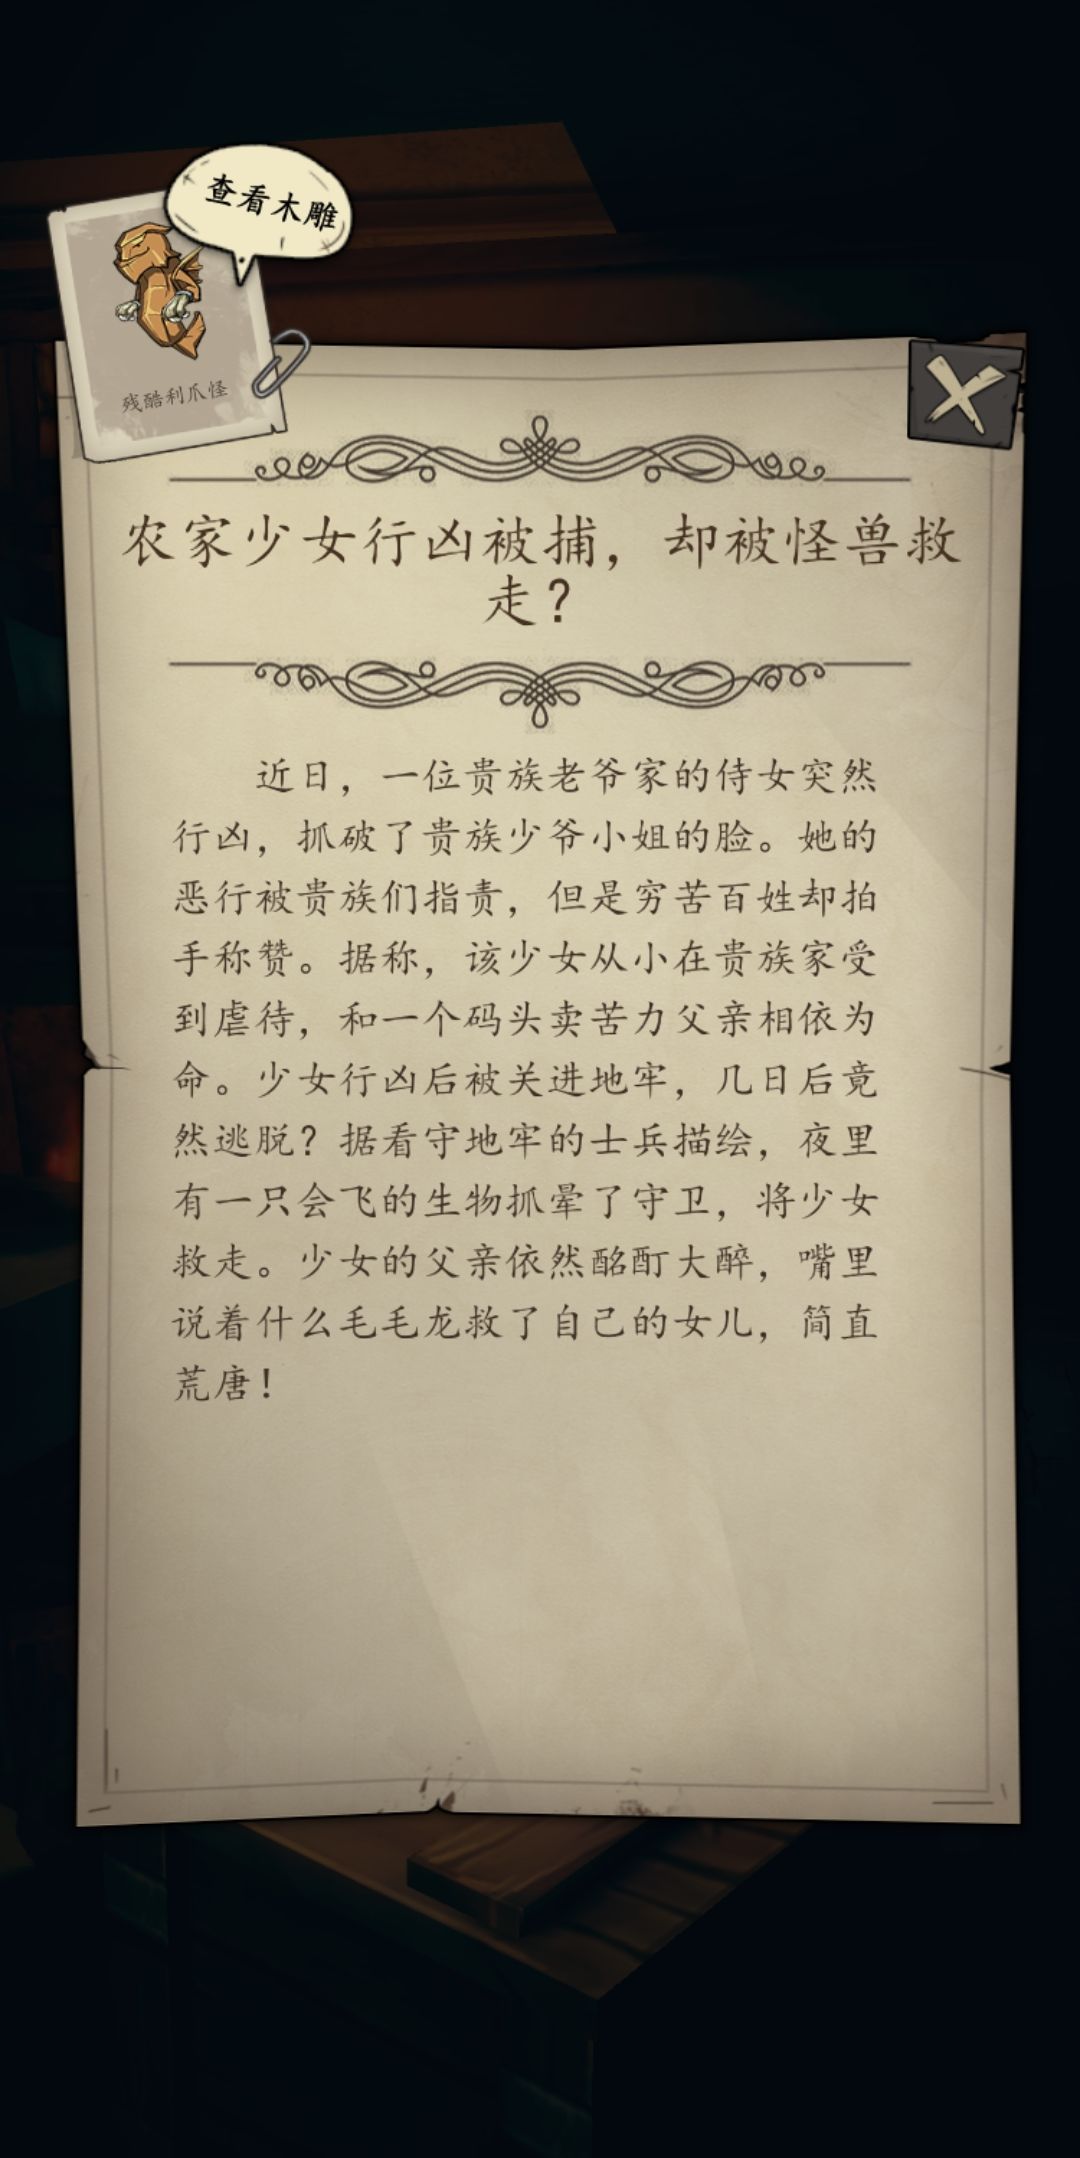 查看木雕
残酷利爪怪
农家少女行凶被捕，却被怪兽救
走？
近日，一位贵族老爷家的侍女突然
行凶，抓破了贵族少爷小姐的脸。她的
恶行被贵族们指责，但是穷苦百姓却拍
手称赞。据称，该少女从小在贵族家受
到虐待，和一个码头卖苦力父亲相依为
命。少女行凶后被关进地牢，几日后竟
然逃脱？据看守地牢的士兵描绘，夜里
有一只会飞的生物抓晕了守卫，将少女
救走。少女的父亲依然酩酊大醉，嘴里
说着什么毛毛龙救了自己的女儿，简直
荒唐！